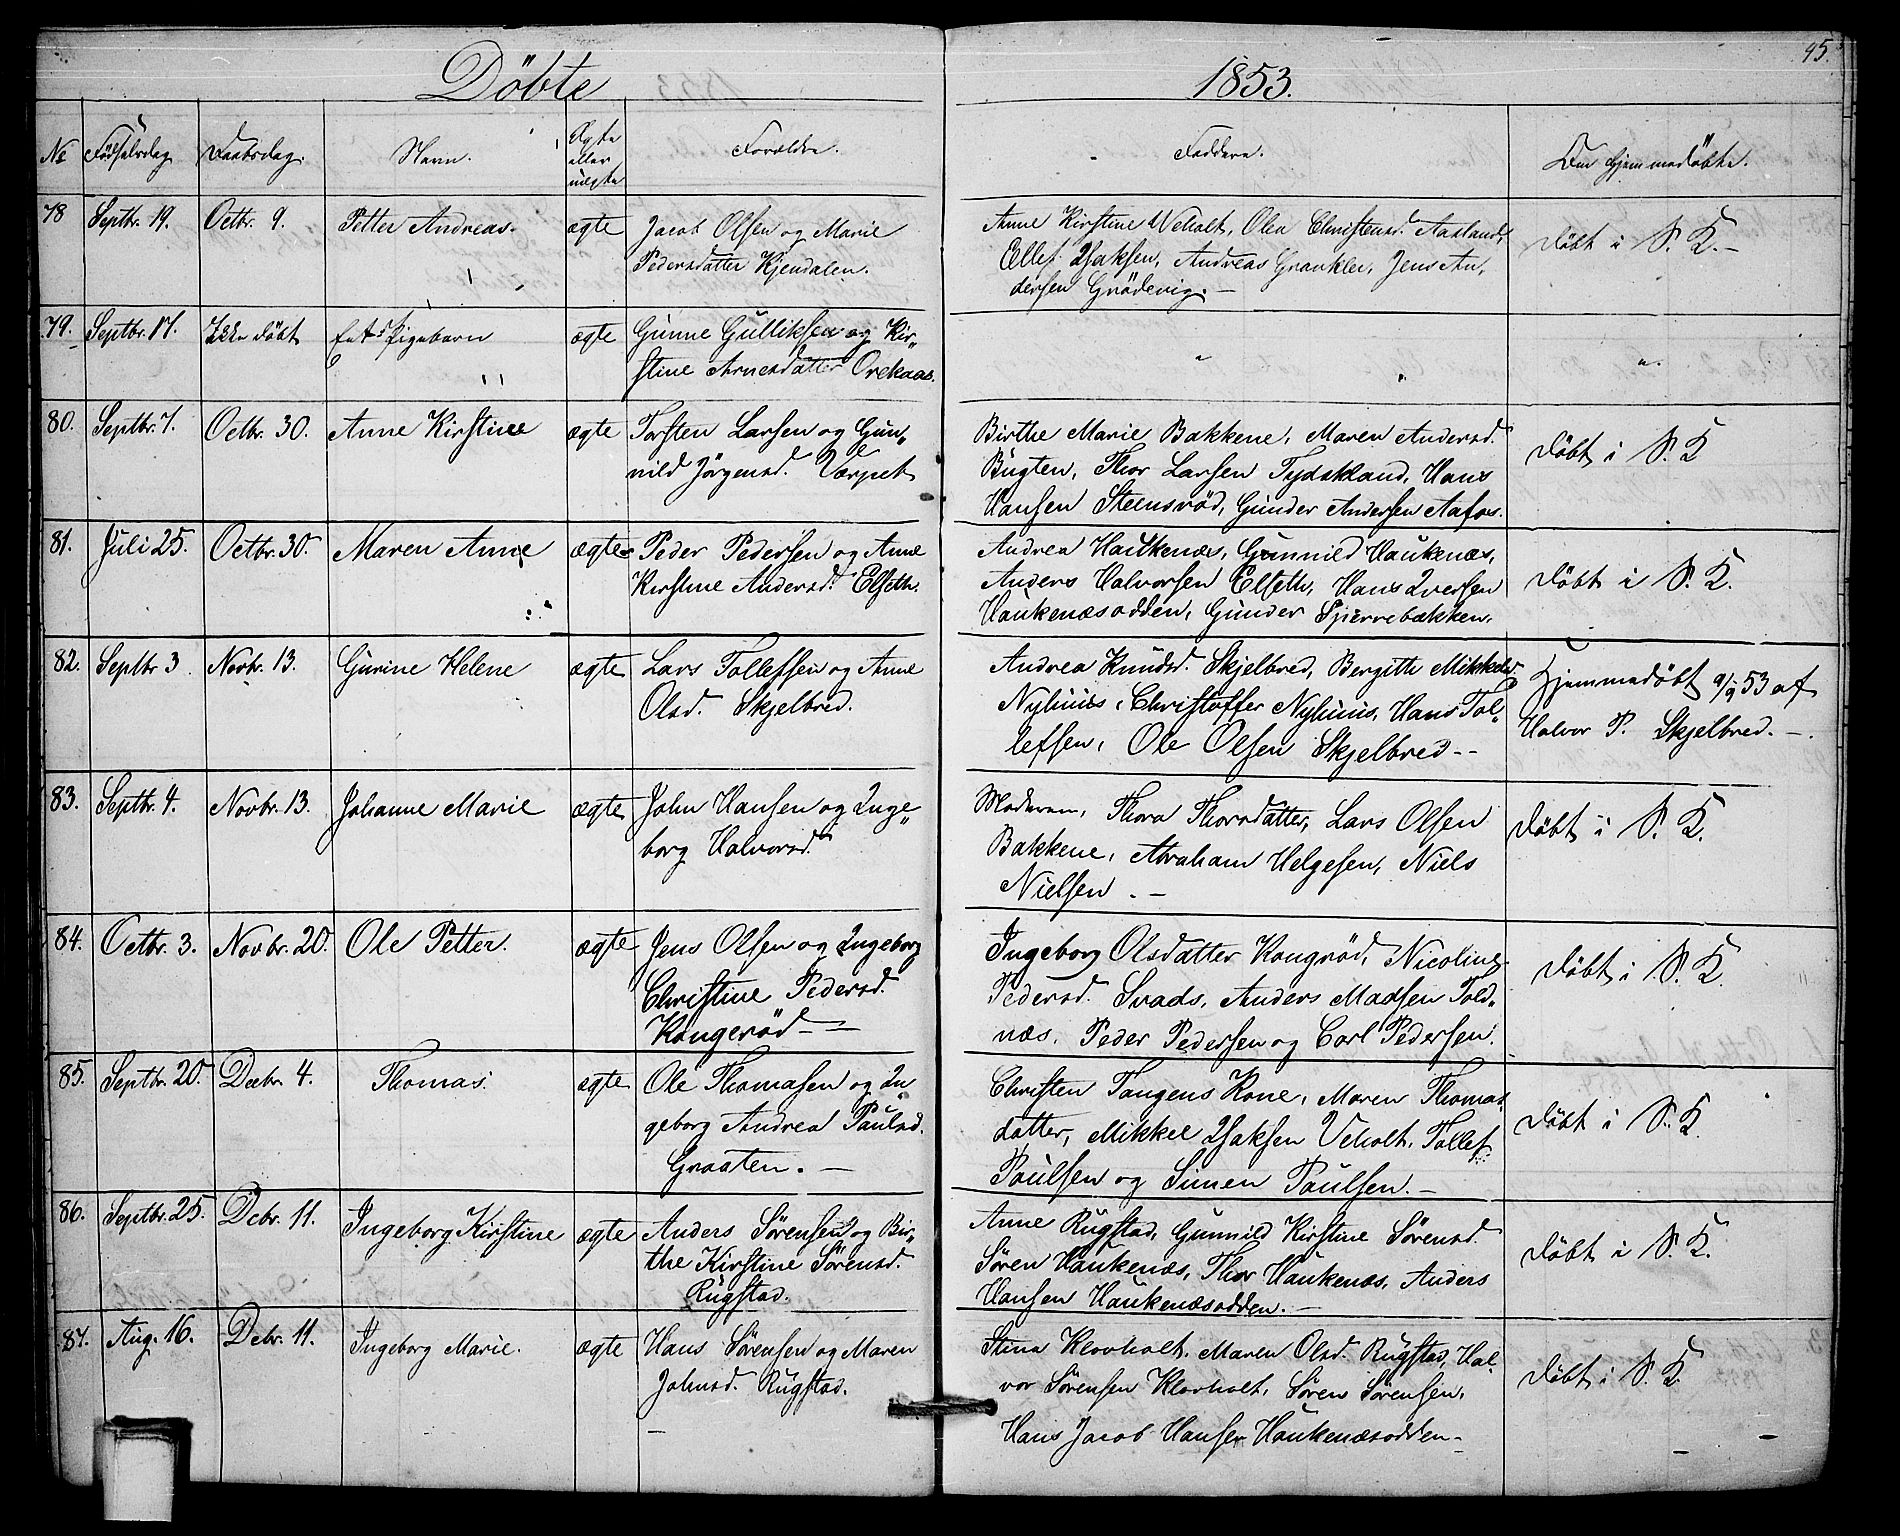 Döbte
1853.
45.
No Födselsdag Daabsdag. Navn. Ægte eller uægte Forældre. Faddere. Om hjemmedöbte.
78 Septbr. 19. Octbr. 9. Petter Andreas. ægte Jacob Olsen og Marie
Pedersdatter Kjendalen.
Anne Kirstine Veholt, Olea Christensd. Aasland,
Ellef Isaksen, Andreas Grankler, Jens An,
dersen Grödevig. —
döbt i S. K. —
79. Septbr. 17. Ikke döbt Et d Pigebarn ægte Gunne Gulliksen og Kir„
stine Arnesdatter Orekaas.
" " "
80. Septbr. 7. Octbr. 30. Anne Kirstine ægte Torsten Larsen og Gun„
nild Jörgensd. Værpet
Birthe Marie Bakkene, Maren Andersd.
Bugten, Thor Larsen Tydskland, Hans
Hansen Steensröd, Gunder Andersen Aafos.
döbt i S. K
81. Juli 25. Octbr. 30. Maren Anne ægte Peder Pedersen og Anne
Kirstine Andersd. Elseth.
Andrea Haukenæs, Gunnild Haukenæs,
Anders Halvorsen Elseth, Hans Iversen
Haukenæsodden, Gunder Spirrebækken.
döbt i S. K.
82. Septbr 3 Novbr. 13. Gurine Helene ægte Lars Tollefsen og Anne
Olsd. Skjelbred.
Andrea Knudsd. Skjelbred, Bergitte Mikkelsd
Nyhuus, Christoffer Nyhuus, Hans Tol„
lefsen, Ole Olsen Skjelbred --
Hjemmedöbt 9/9 53 af
Halvor P. Skjelbred. —.
83. Septbr. 4. Novbr. 13. Johanne Marie ægte John Hansen og Inge„
borg Halvorsd.
Moderen, Thora Thorsdatter, Lars Olsen
Bakkene, Abraham Helgesen, Niels
Nielsen. —
döbt i S. K.
84. Octbr. 3. Novbr. 20. Ole Petter. ægte Jens Olsen og Ingeborg
Christine Pedersd.
Kongeröd —
Ingeborg Olsdatter Kongröd, Nicoline
Pedersd. Svads, Anders Madsen Told„
næs. Peder Pedersen og Carl Pedersen.
döbt i S. K.
85. Septbr. 20. Decbr. 4. Thomas. ægte Ole Thomasen og In„
geborg Andrea Paulsd.
Graaten. —
Christen Tangens Kone, Maren Thomas„
datter, Mikkel Isaksen Veholt, Tollef
Paulsen og Simen Paulsen. —
döbt i S. K.
86. Septbr. 25. Dcbr. 11. Ingeborg Kirstine ægte Anders Sörensen og Bir„
the Kirstine Sörensd.
Rugstad.
Anne Rugstad, Gunnild Kirstine Sörensd.
Sören Haukenæs, Thor Haukenæs, Anders
Hansen Haukenæsodden. —
döbt i S. K.
87. Aug. 16. Dcbr. 11. Ingeborg Marie. ægte Hans Sörensen og Maren
Johnsd. Rugstad.
—
Stina Klovholt, Maren Olsd. Rugstad, Hal„
vor Sörensen Klovholt, Sören Sörensen,
Hans Jacob Hansen Haukenæsodden —
döbt i S. K.